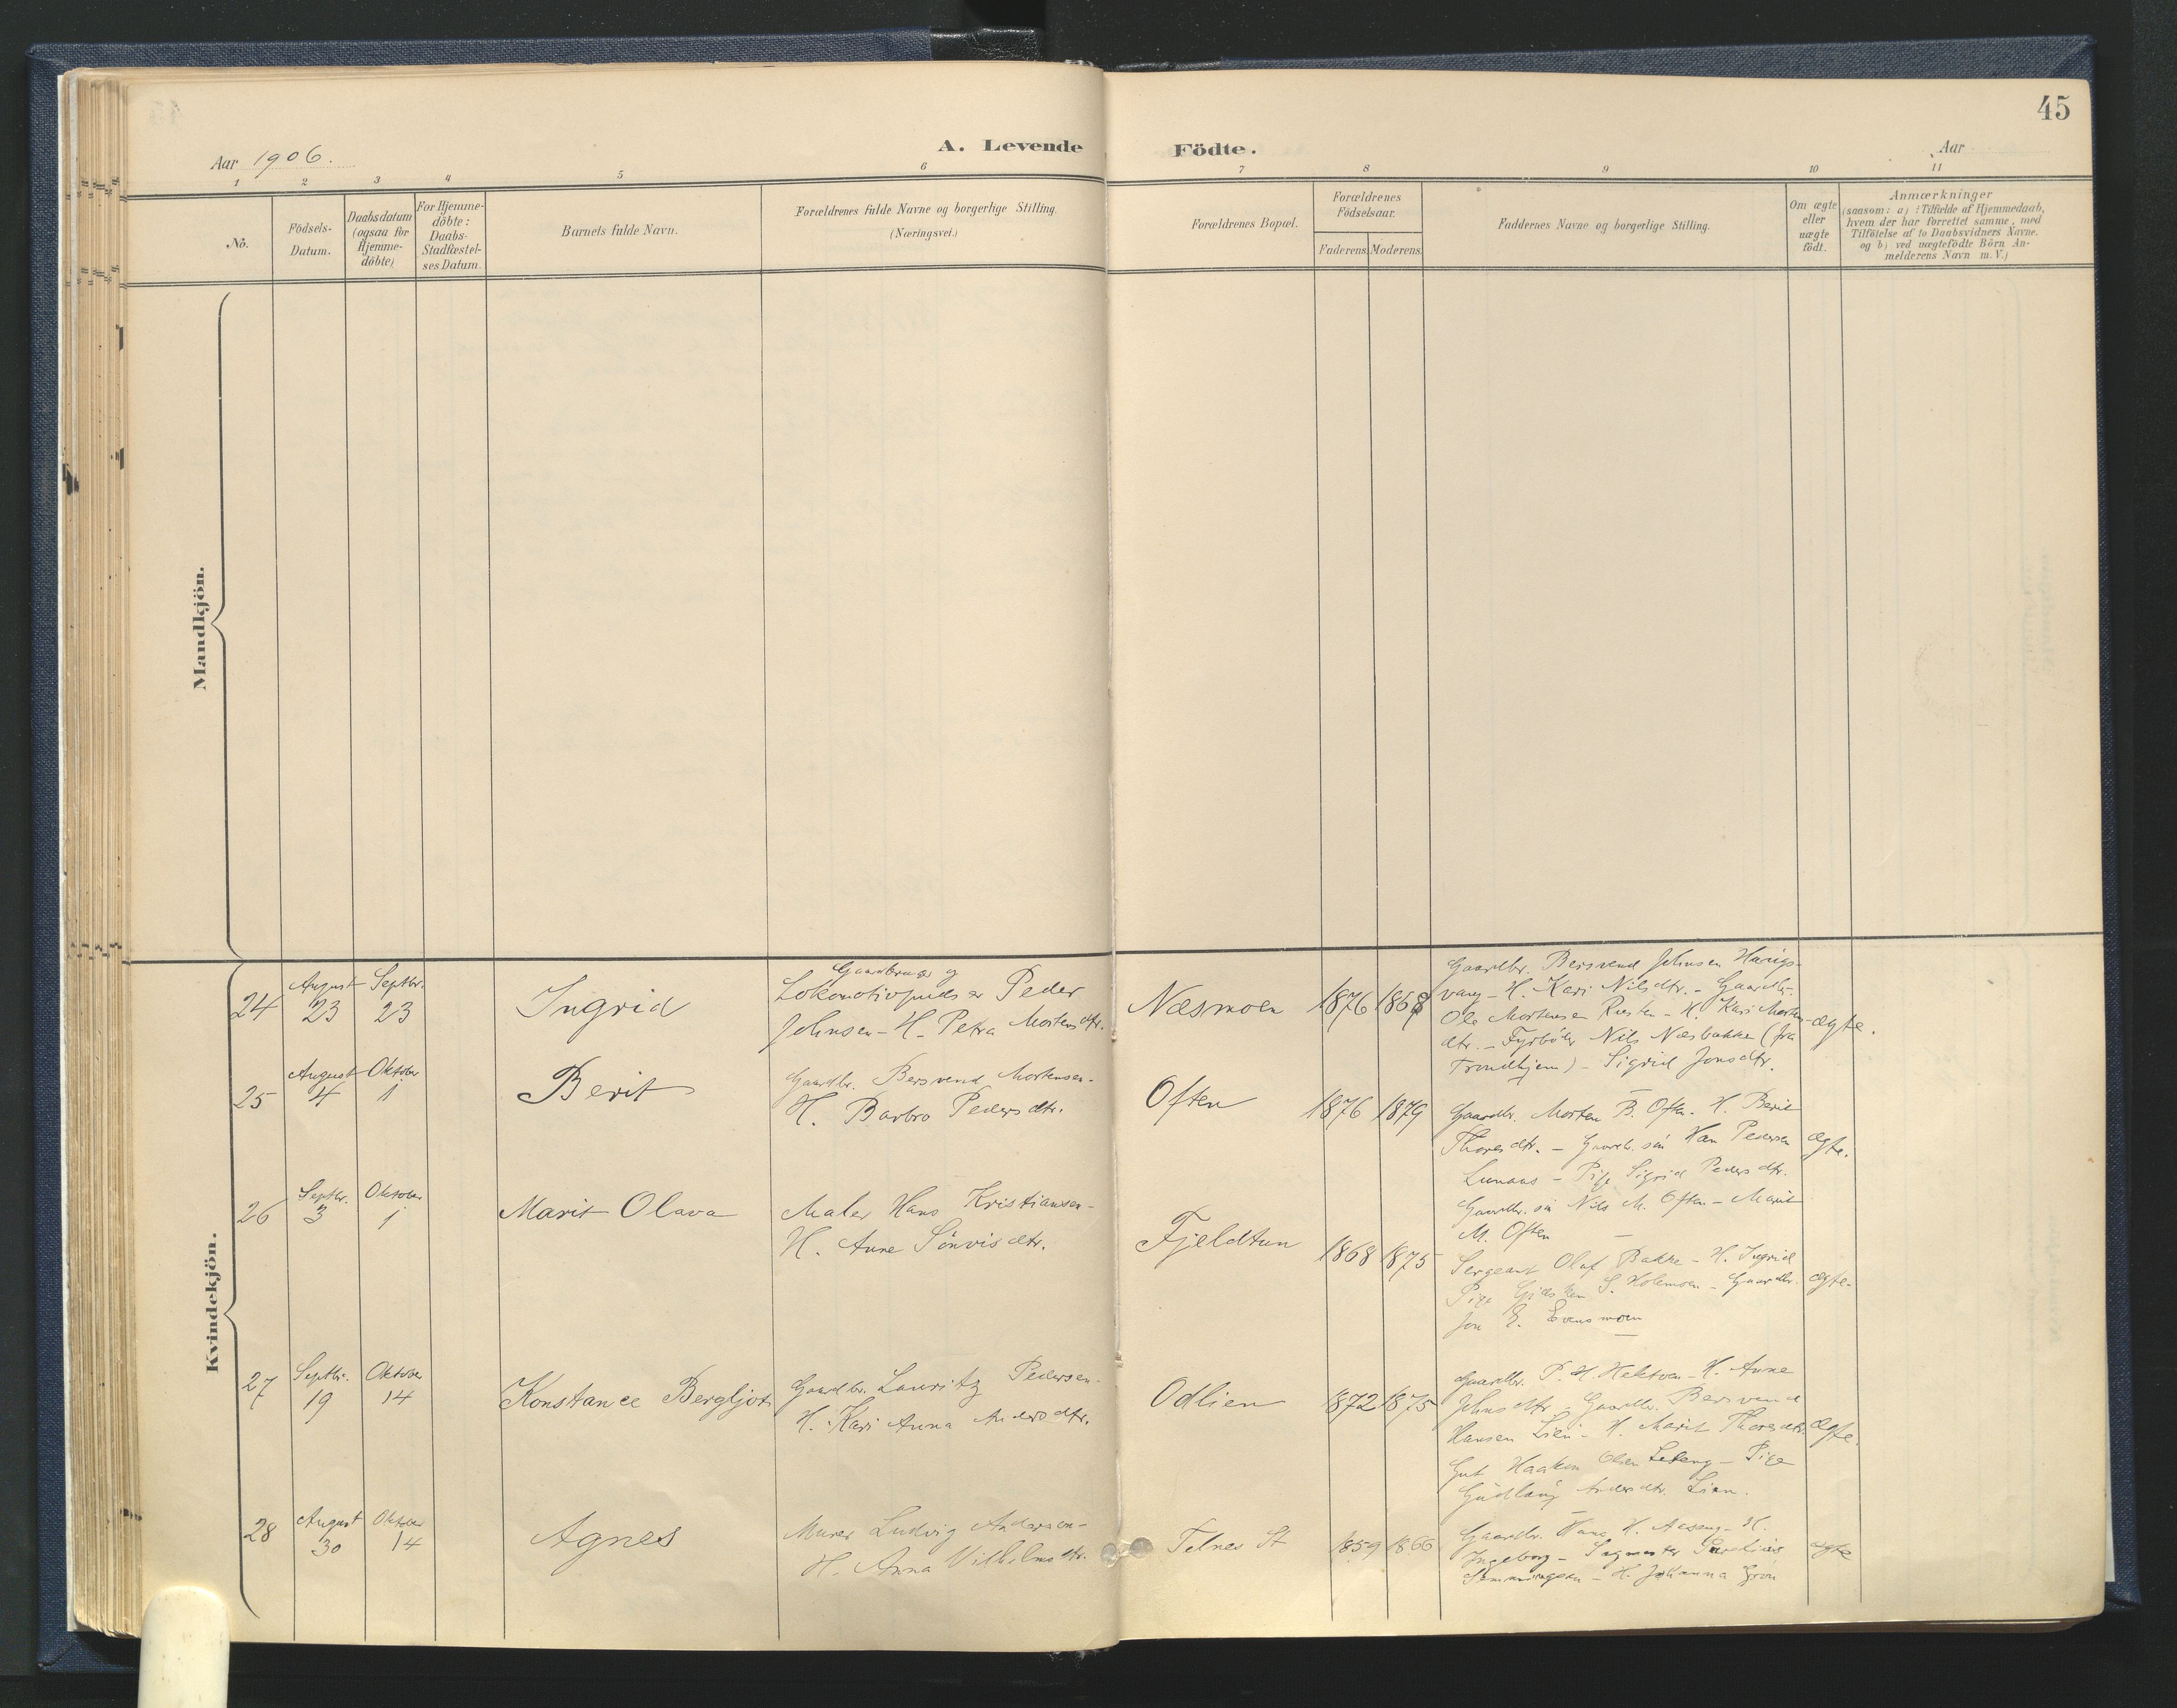 45
Aar 1906.
A. Levende Födte.
Aar
1 2 3 4 5 6 7 8 9 10 11
No.
Födsels-
Datum.
Daabsdatum
(ogsaa for
Hjemme-
döbte)
For Hjemme-
döbte:
Daabs-
Stadfæstel-
ses Datum.
Barnets fulde Navn.
Forældrenes fulde Navne og borgerlige Stilling.
(Næringsvei.)
Forældrenes Bopæl.
Forældrenes
Födselsaar.
Faderens Moderens
Faddernes Navne og borgerlige Stilling.
Om ægte
eller
uægte
födt.
Anmærkninger
(saasom: a) i Tilfælde af Hjemmedaab,
hvem der har forrettet samme, med
Tilföielse af to Daabsvidners Navne.
og b) ved uægtefödte Börn An-
melderens Navn m. V.)
Mandkjön.
Kvindekjön.
24
August
23
Septbr.
23
Ingrid
Gaardbruger og
Lokomotivpudser Peder
Johnsen - H. Petra Mortensdtr.
Næsmoen
1876 1868
Gaardbr. Bersvend Johnsen
vang - H. Kari Nilsdtr. - Gaardbr.
Ole Mortensen - H. Kari Morten-
dtr. - Fyrbøder Nils Næsbakken (fra
Trondhjem) - Sigrid Jonsdtr.
ægte.
25
August
4
Oktober
1
Berit
Gaardbr. Bersvend Mortensen -
H. Barbro Pedersdtr.
Often
1876 1879
Gaardbr. Morten B. Often. H. Berit
Thoresdtr. - Gaardb. søn Han Pedersen
Lunaas - Pige Sigrid Pedersdtr.
Gaardbr. søn Nils M. Often - Marit
M. Often
ægte.
26
Septbr.
3
Oktober
1
Marit Olava
Maler Hans Kristiansen -
H. Anne Sønvisdtr.
Fjeldtun
1868 1875
Sergeant Olaf Bakke - H. Ingrid
Pige S. Holemoen - Gaardbr.
Jon E. Evensmoen
ægte.
27
Septbr.
19
Oktober
14
Konstance Bergljot
Gaardbr. Lauritz Pedersen -
H. Kari Anna Andersdtr.
Odlien
1872 1875
Gaardbr. P. H. Hektoen - H. Anne
Johnsdtr - Gaardbr. Bersvend
Hansen Lien - H. Marit Thoresdtr.
Gut Haakon Olsen - Pige
Gudlaug Andersdtr. Lien.
ægte.
28
August
30
Oktober
14
Agnes
Murer Ludvig Andersen -
H. Anna Vilhelmsdtr.
Telnes St
1859 1866
Gaardbr. Hans H. Aaseng - H.
Ingeborg - Sagmester
Semmingsen - H. Johanna Grøn
ægte